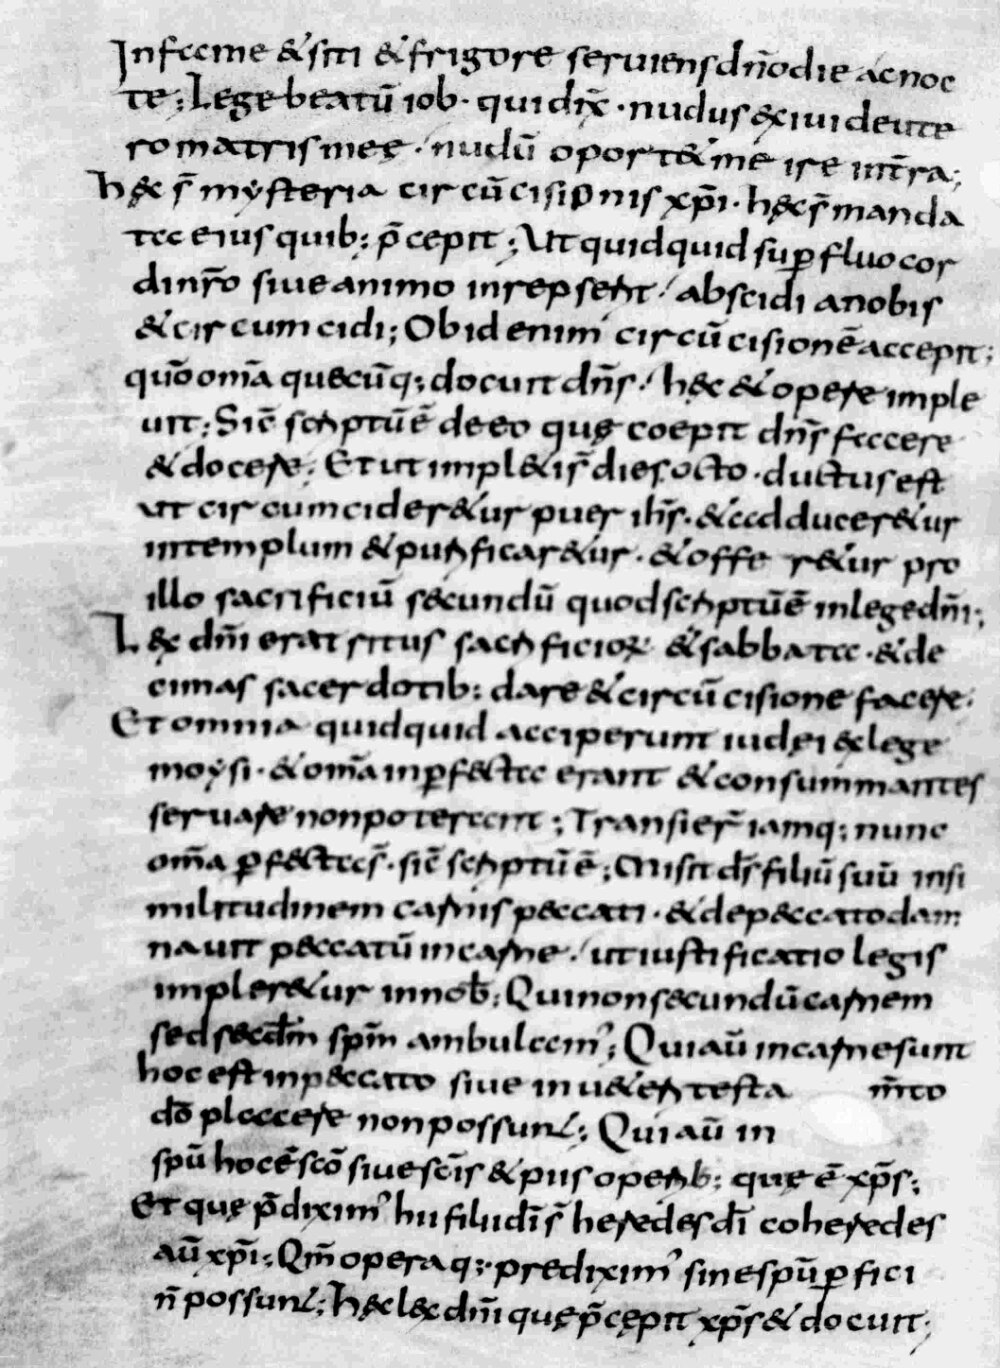 In fame & siti & frigore seruiens dn̄o die ac noc
te; Lege beatū iob· qui dix̄· nudus exiui de ute
ro matris meę· nudū oport& me ire int̄ra;
hęc s̄ mysteria circūcisionis xp̄i· hęc s̄ manda
ta eius quib; p̄cepit; Ut quidquid sup̲fluo cor
di nr̄o siue animo inrepserit/ abscidi a nobis
& circumcidi; Ob id enim circūcisionē accepit;
quō om̄a quecūq; docuit dn̄s/ hęc & opere imple
uit; Sic̄ scriptū ē de eo quę coepit dn̄s facere
& docere; Et ut impl&i s̄ dies octo· ductus est
ut circumcider&ur puer ih̄s· & adducer&ur
in templum & purificar&ur· & offerr&ur pro
illo sacrificiū secundū quod scriptū ē in lege dn̄i;
Lex dn̄i erat ritus sacrificioꝝ & sabbata· & de
cimas sacerdotib; dare & circūcisione facere·
Et omnia quidquid acciperunt iudęi ex lege
moysi· & om̄a inp̲fecta erant & consummantes
seruare non poterant; Transier̄ iamq; nunc
om̄a p̲fecta s̄· sic̄ scriptū ē; Misit d̄s filiū suū in si
militudinem carnis peccati· & de peccato dam
nauit peccatū in carne/ ut iustificatio legis
impler&ur in nob̄; Qui non secundū carnem
sed secd̄m sp̄m ambulam'; Qui aū in carne sunt
hoc est in peccato siue in u&eri testam̄to
dō placere non possunt; Qui aū in
sp̄u hoc ē scō siue sc̄is & piis operib; quę ē xp̄s;
Et quę p̄dixim' hii filii dī s̄ heredes dī coheredes
aū xp̄i; Qm̄ opera q; predixim' sine sp̄u p̲fici
n̄ possunt; Hęc lex dn̄i quę p̄cępit xp̄s & docuit;